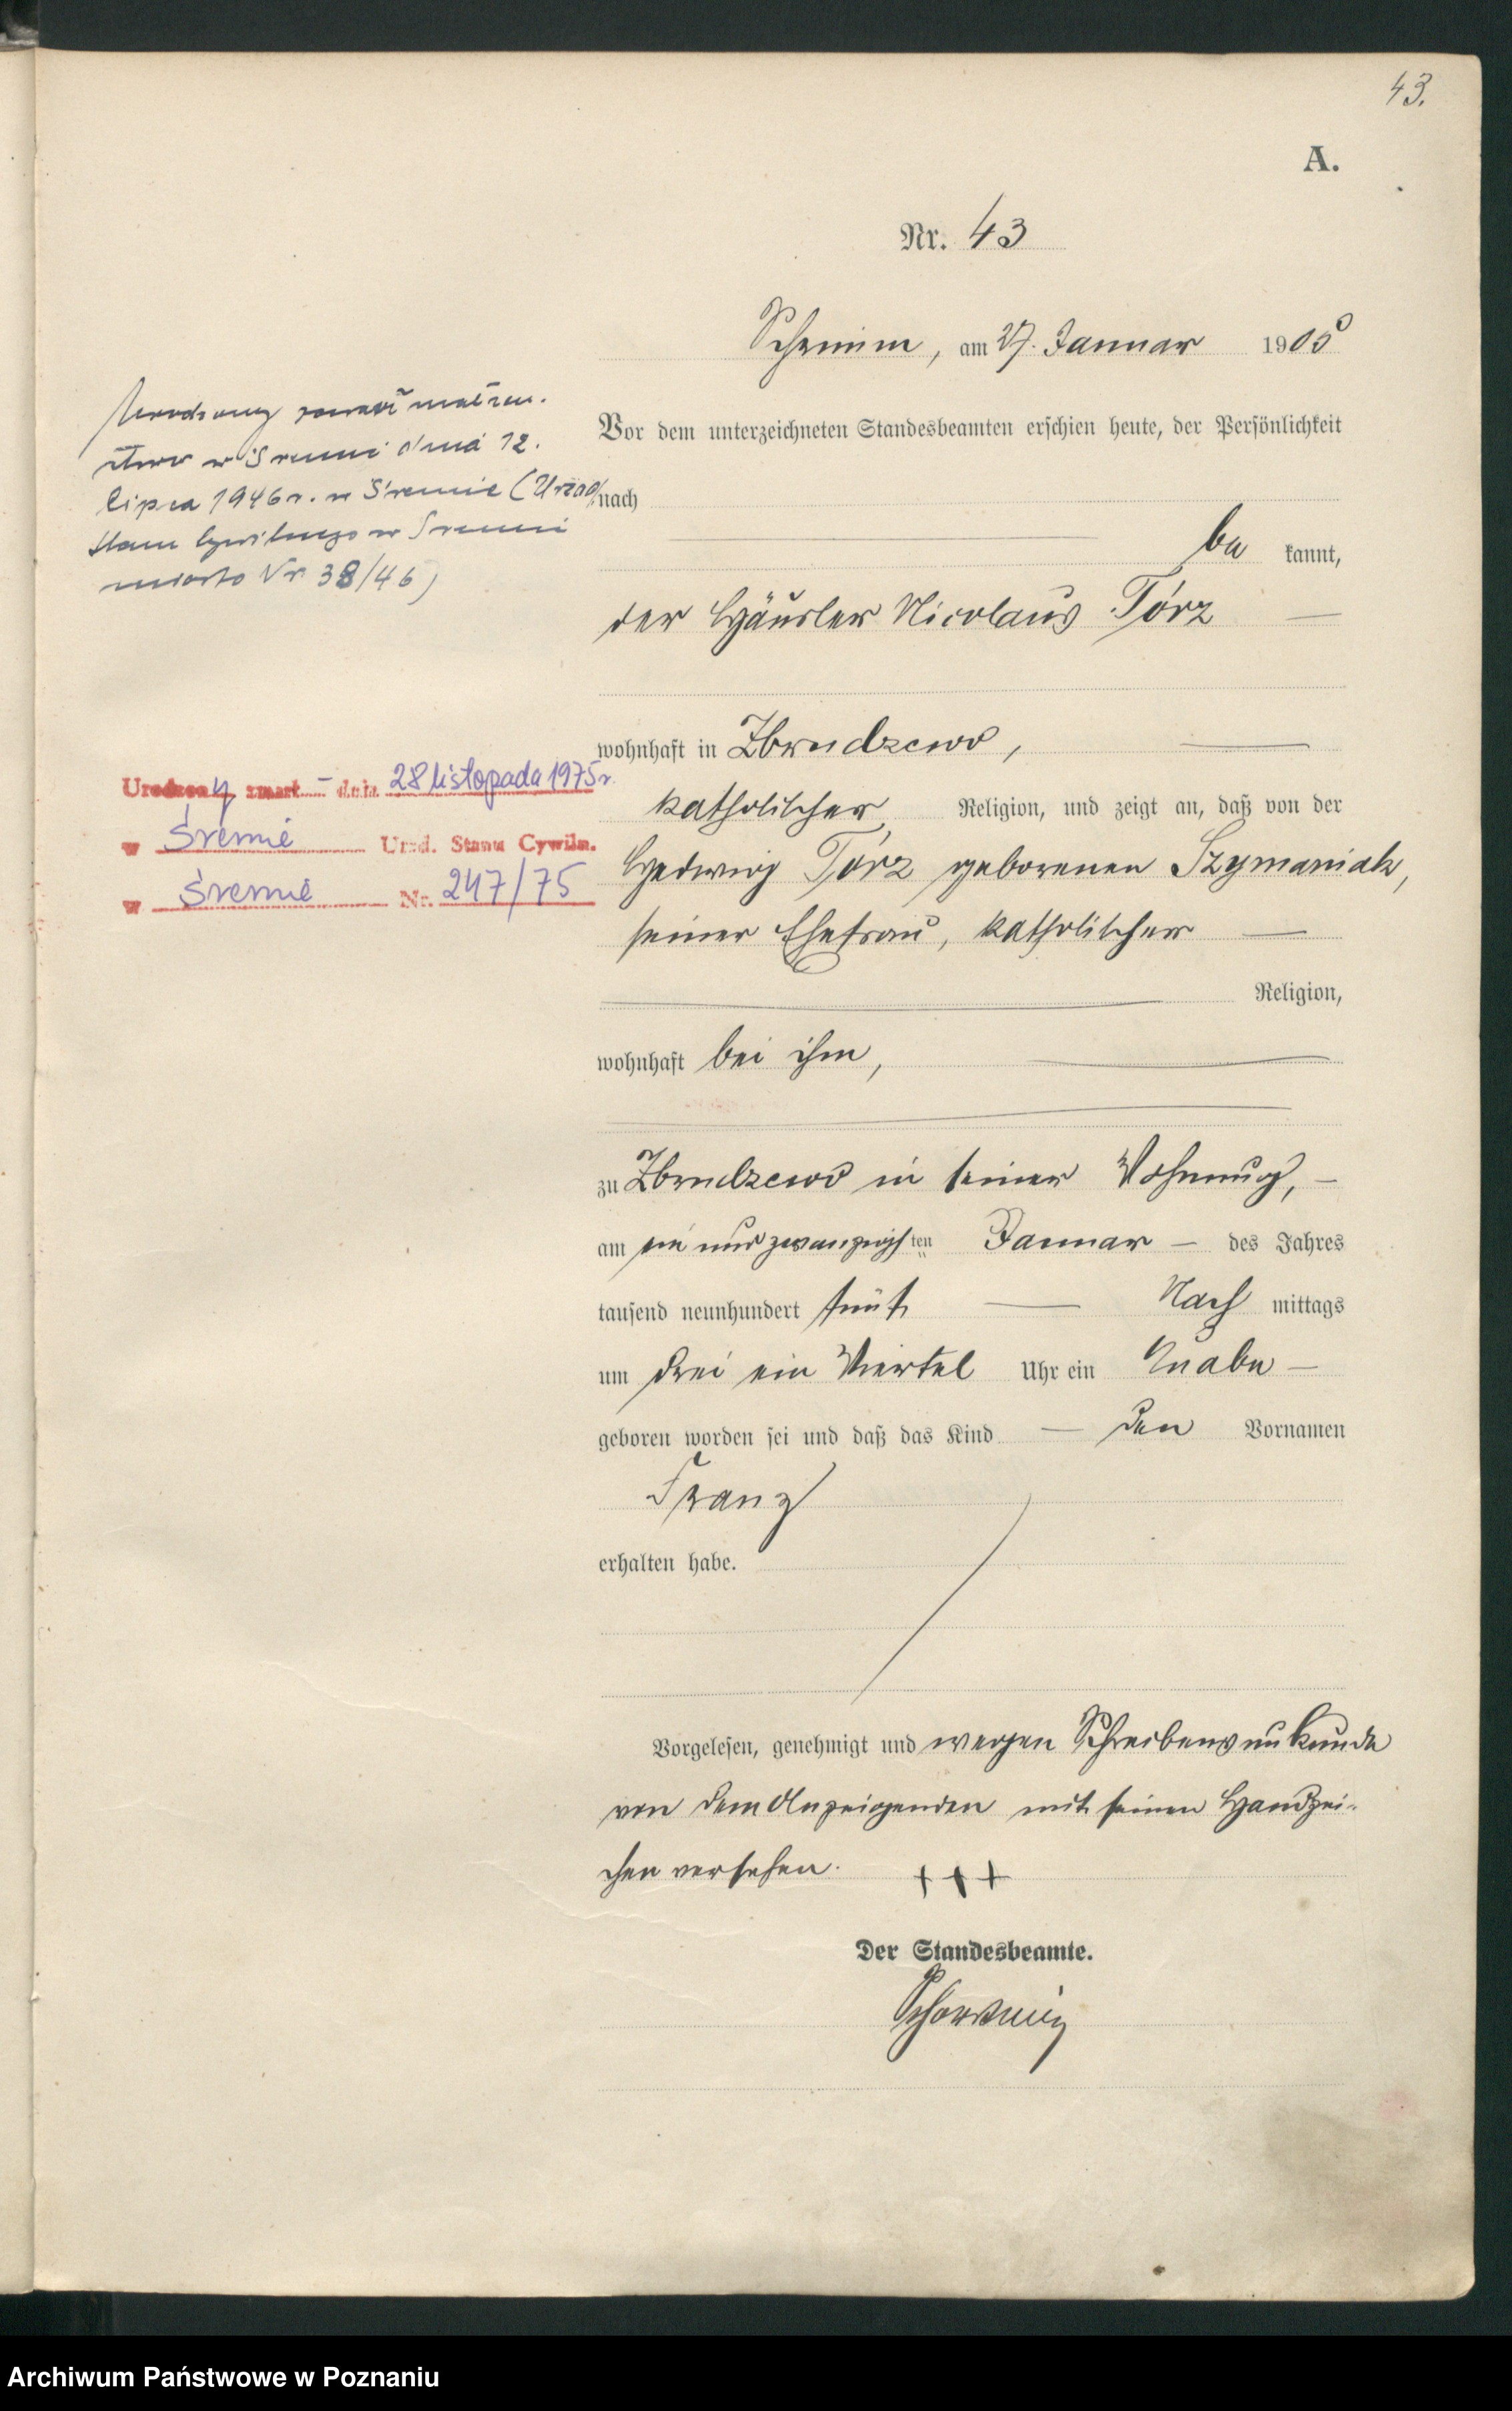 43.
A.
Nr. 43
Schrimm, am 27. Januar 1905
Vor dem unterzeichneten Standesbeamten erschien heute, der Persönlichkeit
nach
be kannt,
der Häusler Nicolaus Tórz
wohnhaft in Zbrudzewo,
katholischer Religion, und zeigt an, daß von der
Hedwig Tórz geborenen Szymaniak,
seiner Ehefrau, katholischer
Religion,
wohnhaft bei ihm,
zu Zbrudzewo in seiner Wohnung,
am ein und zwanzigsten Januar des Jahres
tausend neunhundert fünf Nach mittags
um drei ein Viertel Uhr ein Knabe
geboren worden sei und daß das Kind den Vornamen
Franz
erhalten habe.
Vorgelesen, genehmigt und wegen Schreibensunkunde
von dem Anzeigenden mit seinen Handzei-
chen versehen. +++
Der Standesbeamte.
Urodzony zawarł małżeń.
stwo w Śremi dnia 12.
lipca 1946 r. w Śremie (Urząd
Stanu Cywilnego w Śremi
miasto Nr 38/46)
Urodzony zmarł - dnia 28 listopada 1975 r.
w Śremie Urzd. Stanu Cywiln.
w Śremie Nr. 247/75
Archiwum Państwowe w Poznaniu